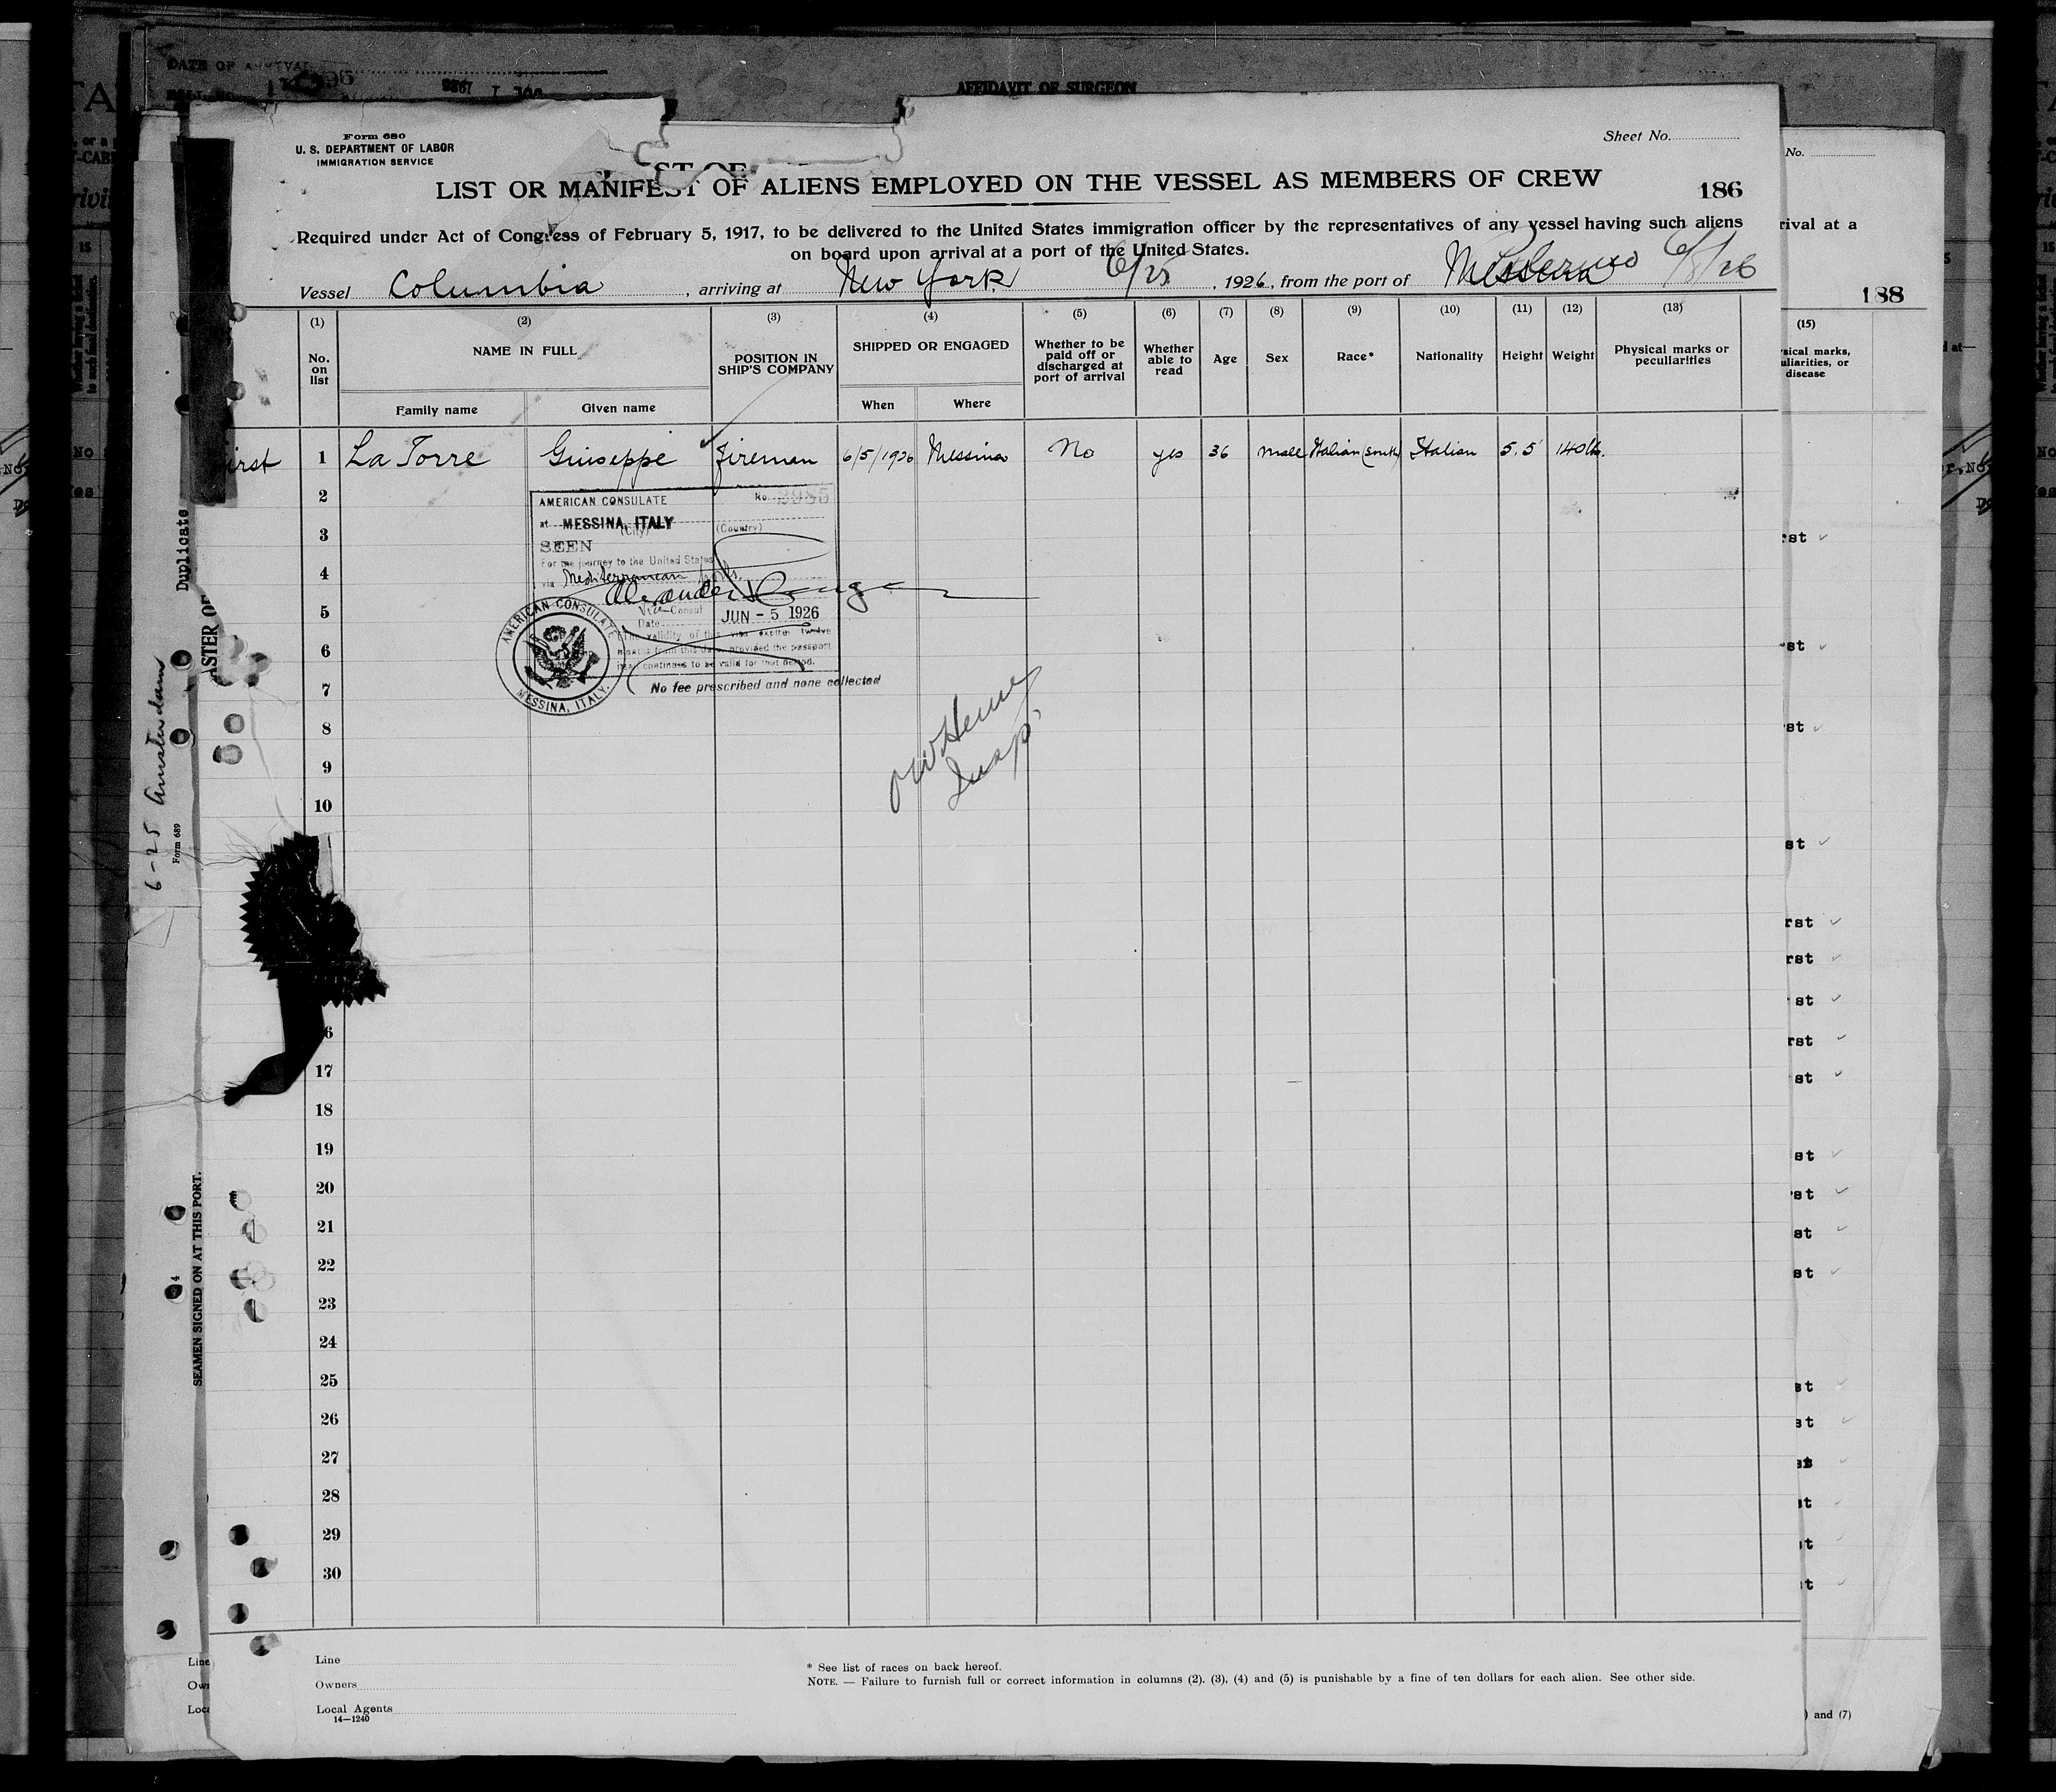 DATE OF ARRIVAL
AFFIDAVIT OF SURGEON
Form 680
U. S. DEPARTMENT OF LABOR
IMMIGRATION SERVICE
Sheet No.
No.
LIST OR MANIFEST OF ALIENS EMPLOYED ON THE VESSEL AS MEMBERS OF CREW
186
Required under Act of Congress of February 5, 1917, to be delivered to the United States immigration officer by the representatives of any vessel having such aliens
on board upon arrival at a port of the United States.
rival at a
Vessel Columbia, arriving at New York 6/25, 1926, from the port of Messina Palermo 6/8/26
188
(1) (2) (3) (4) (5) (6) (7) (8) (9) (10) (11) (12) (13)
(15)
No. on list
NAME IN FULL
Family name
Given name
POSITION IN SHIP'S COMPANY
SHIPPED OR ENGAGED
When
Where
Whether to be paid off or discharged at port of arrival
Whether able to read
Age
Sex
Race*
Nationality
Height
Weight
Physical marks or peculiarities
sical marks,
uliarities, or
disease
irst 1 La Torre Giuseppe Fireman 6/5/1926 Messina No yes 36 male Italian (South) Italian 5.5 140 lb.
2
3
4
5
6
7
8
9
10
6
17
18
19
20
21
22
23
24
25
26
27
28
29
30
AMERICAN CONSULATE No. 3985
at MESSINA, ITALY
(City) (Country)
SEEN
For the journey to the United States
via Mediterranean ports.
Vice Consul
Date JUN - 5 1926
The validity of this visa expires twelve
months from this date, provided the passport
continues to be valid for that period.
No fee prescribed and none collected
AMERICAN CONSULATE
MESSINA, ITALY.
Insp.
Duplicate
ASTER OF
6-25 Amsterdam
Form 689
SEAMEN SIGNED ON AT THIS PORT.
4
Line
Owners
Local Agents
14—1240
* See list of races on back hereof.
NOTE. — Failure to furnish full or correct information in columns (2), (3), (4) and (5) is punishable by a fine of ten dollars for each alien. See other side.
) and (7)